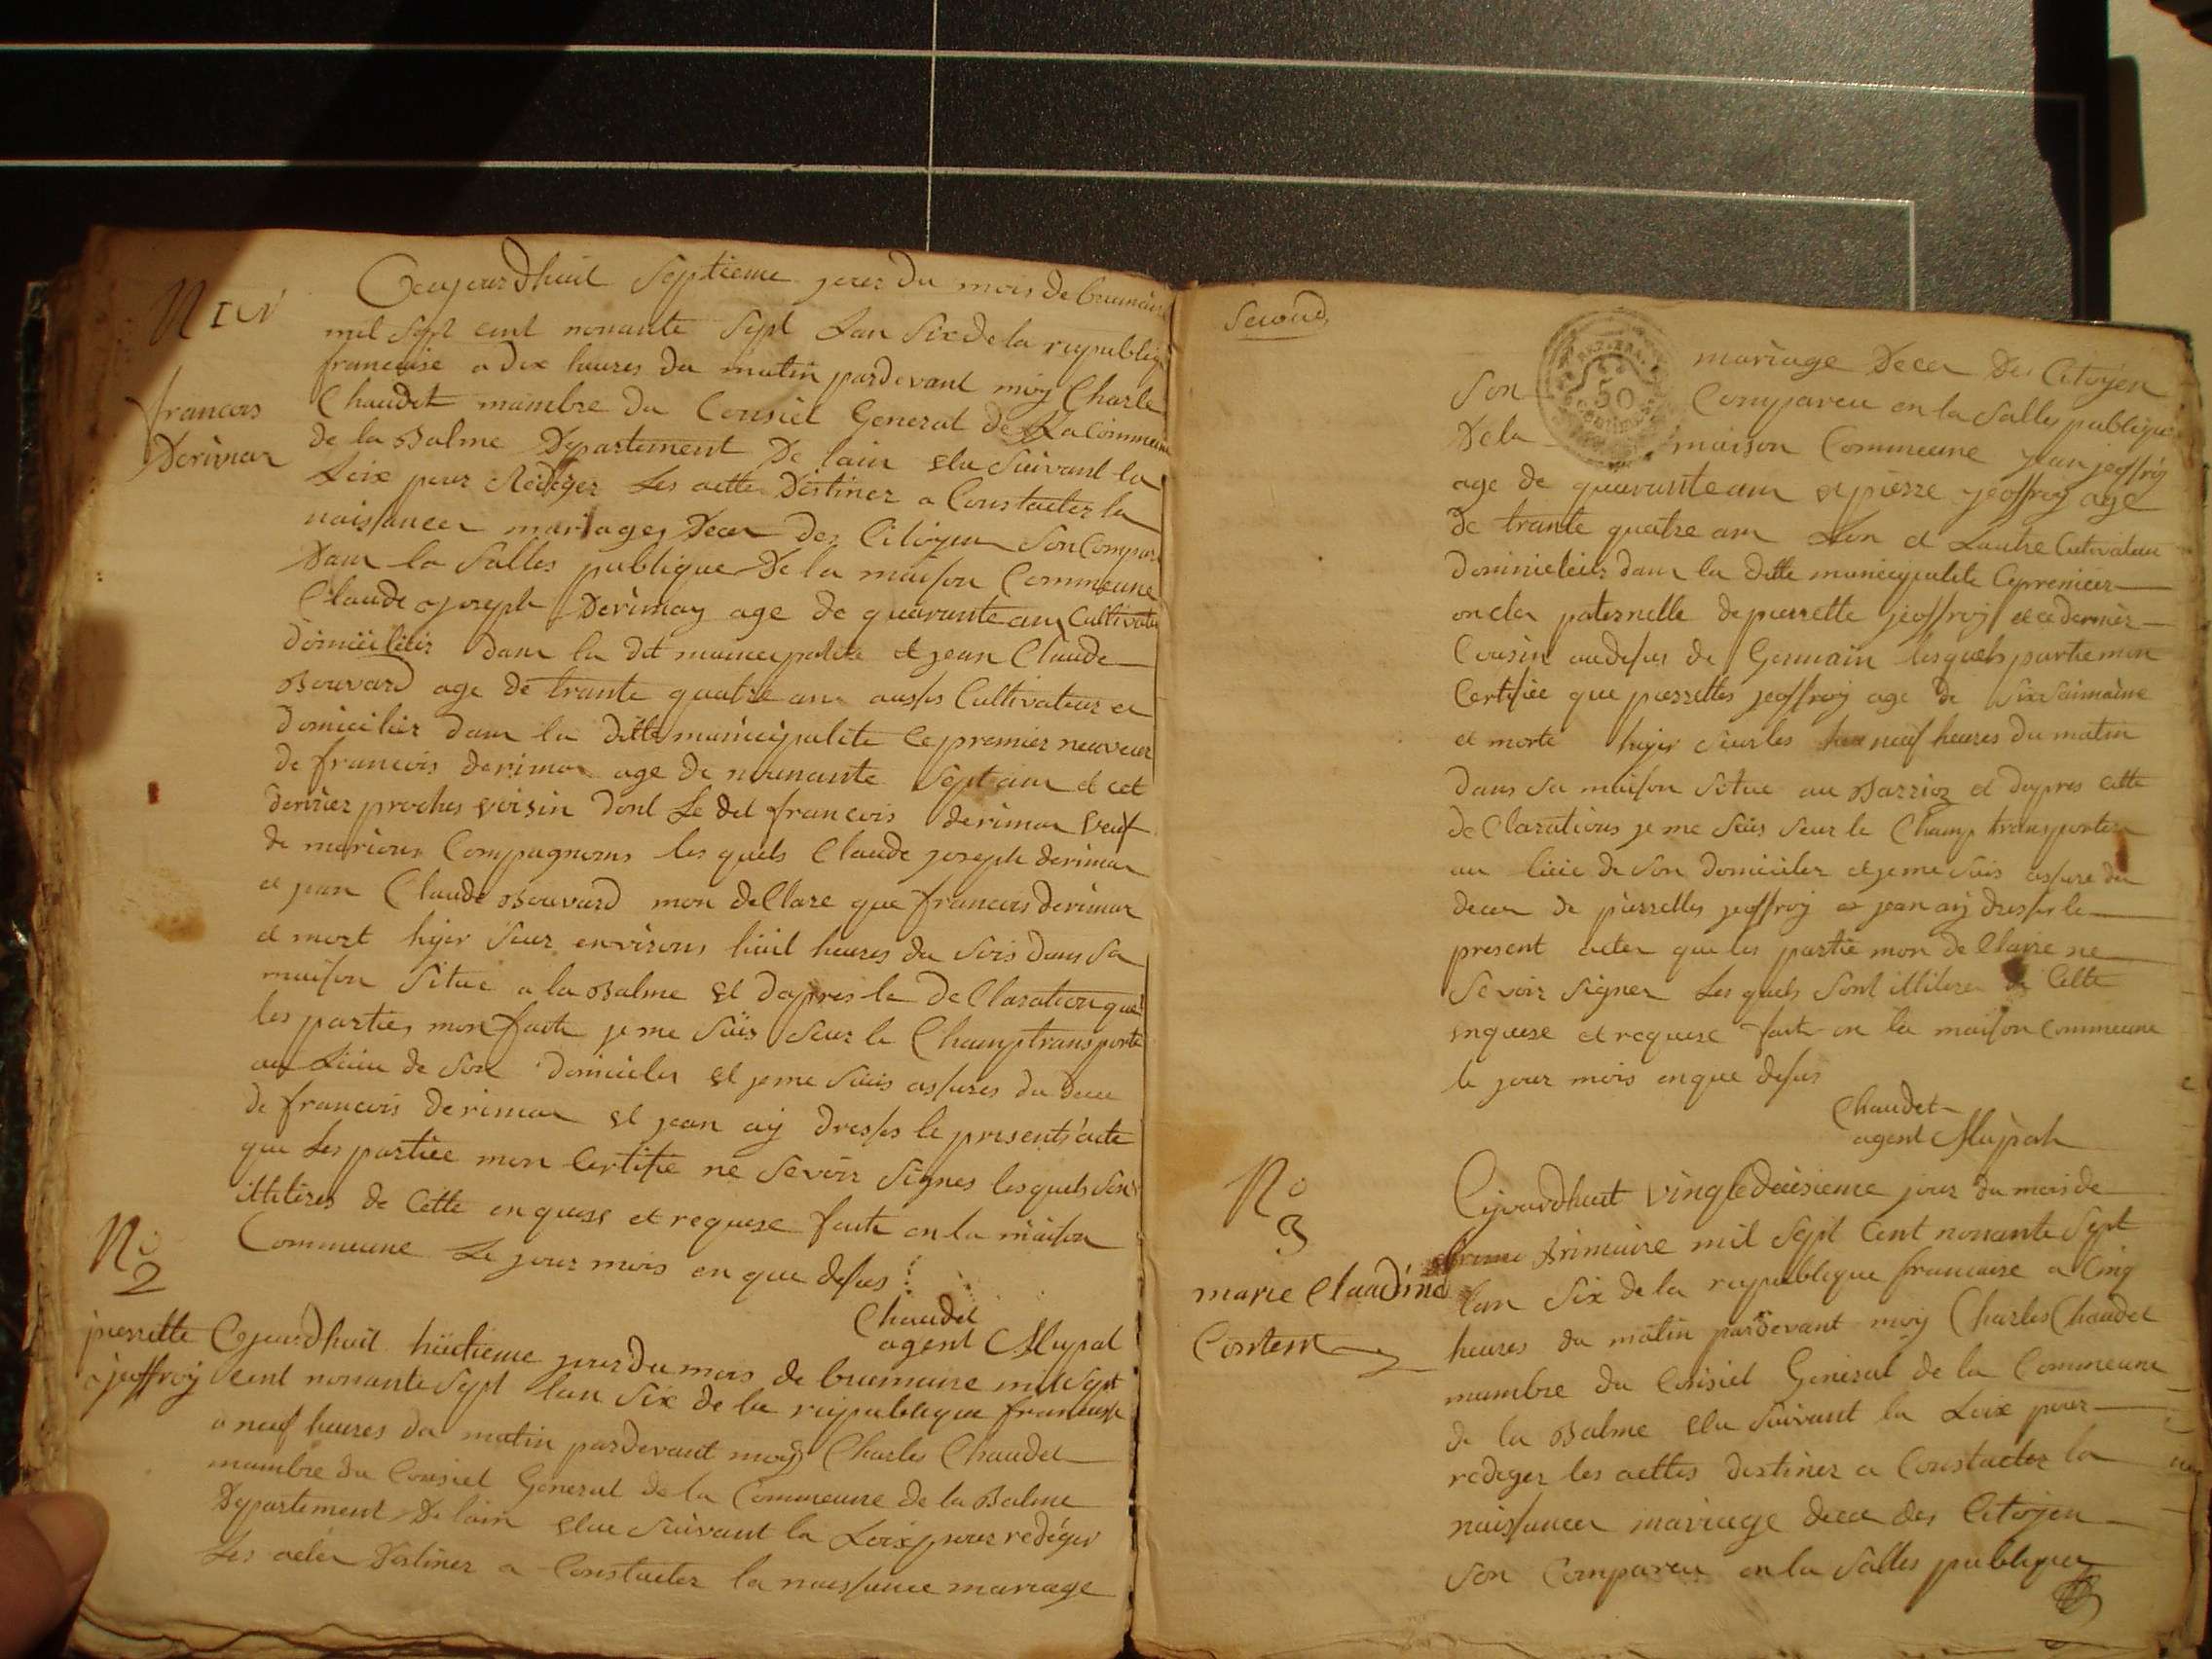 N I er
francois
Derimox
Ceajourdhuit Septieme jour Du mois de brumaire
mil Sept cent nonante Sept Lan Six de la republiq
francaise a dix heures du matin pardevant moy Charle
Chaudet mambre du Consiel General de La Commeune
de la Balme Departement De lain elu Suivant la
Loix pour Rediger Les actte Destinez a Constacter la
naissancer mariages Decer des Citoyen Son Comparu
Dans la Salles publique De la maison Commeune
Claude joseph Derimoy age de quarante ans Cultivate
domicilier dans la dit municipalite et jean Claude
Bouvard age de trante quatre ans aussis Cultivateur et
domicilier dans la ditte municipalite Le premier neuveur
de francois derimox age de nounante Sept ans et cet
dernier proches voisin dont Le dit francois derimox veuf
de marions Compagnions les quels Claude joseph derimox
et jean Claude Bouvard mon declare que francois derimox
et mort hyer Seur environs huit heures du Soir dans Sa
maison Situé a la Balme et dapres la declaration que
les parties mon faite je me Suis Seur le Champ transporte
au Lieu de Son domiciler et je me Suis assures du dece
de francois derimox et jean ay dresses le presents acte
que Les partiee mon Certifie ne Sevoir Signes lesquels Son
illiteres de Cette enquese et requese faite en la maison
Commeune Le jour mois en que desus
Chaudet
agent Mupal
No 2
pierrette
jeoffroy
Cejourdhuit huitieme jour du mois de brumaire mil Sept
Cent nonante Sept lan Six de la republique francaise
a neuf heures du matin pardevant moy Charles Chaudet
mambre du Consiel General de la Commeune de la Balme
Departement De lain elue Suivant la Loix pour rediger
Les acter destinez a Constacter la naissance mariage
Second
REP. FRA.
50
CENTIMES
mariage Decer Des Citoyen
Son Compareu en la Salles publique
De la maison Commeune jean jeoffroy
age de quarante ans et pierre jeoffroy age
de trante quatre ans Lun et Lautre Cutivateur
Dominicilier dans la ditte municipalite Ce premier
oncler paternelle de pierrette jeoffroy et ce dernier
Cousin au desus de Germain lesquels partie mon
Certifiee que pierrettes jeoffroy age de Six Saimaine
et morte hyer Seur les neuf heures du matin
dans Sa maison Situe au Barrioz et dapres cette
de Clarations je me Suis Seur le Champ transporter
au lieu de Son domiciler et je me Suis assure du
decer de pierrettes jeoffroy et jean ay dresser le
present acter que les partie mon declaire ne
Sevoir Signer Les quels Sont illiterer de Cette
enquese et requese faite en la maison commeune
le jour mois en que desus
Chaudet
agent Mupal
No 3
marie Claudine
Contem
Cejourdhuit vingt deusieme jour du mois de
frimaire mil Sept Cent nonante Sept
lan Six de la republique francaise a Cinq
heures du matin pardevant moy Charles Chaudet
mambre du Consiel General de la Commeune
de la Balme elu Suivant la Loix pour
rediger les acttes destinez a Constacter la
naissancer mariage decer des Citoyen
Son Compareu en la Salles publiquer